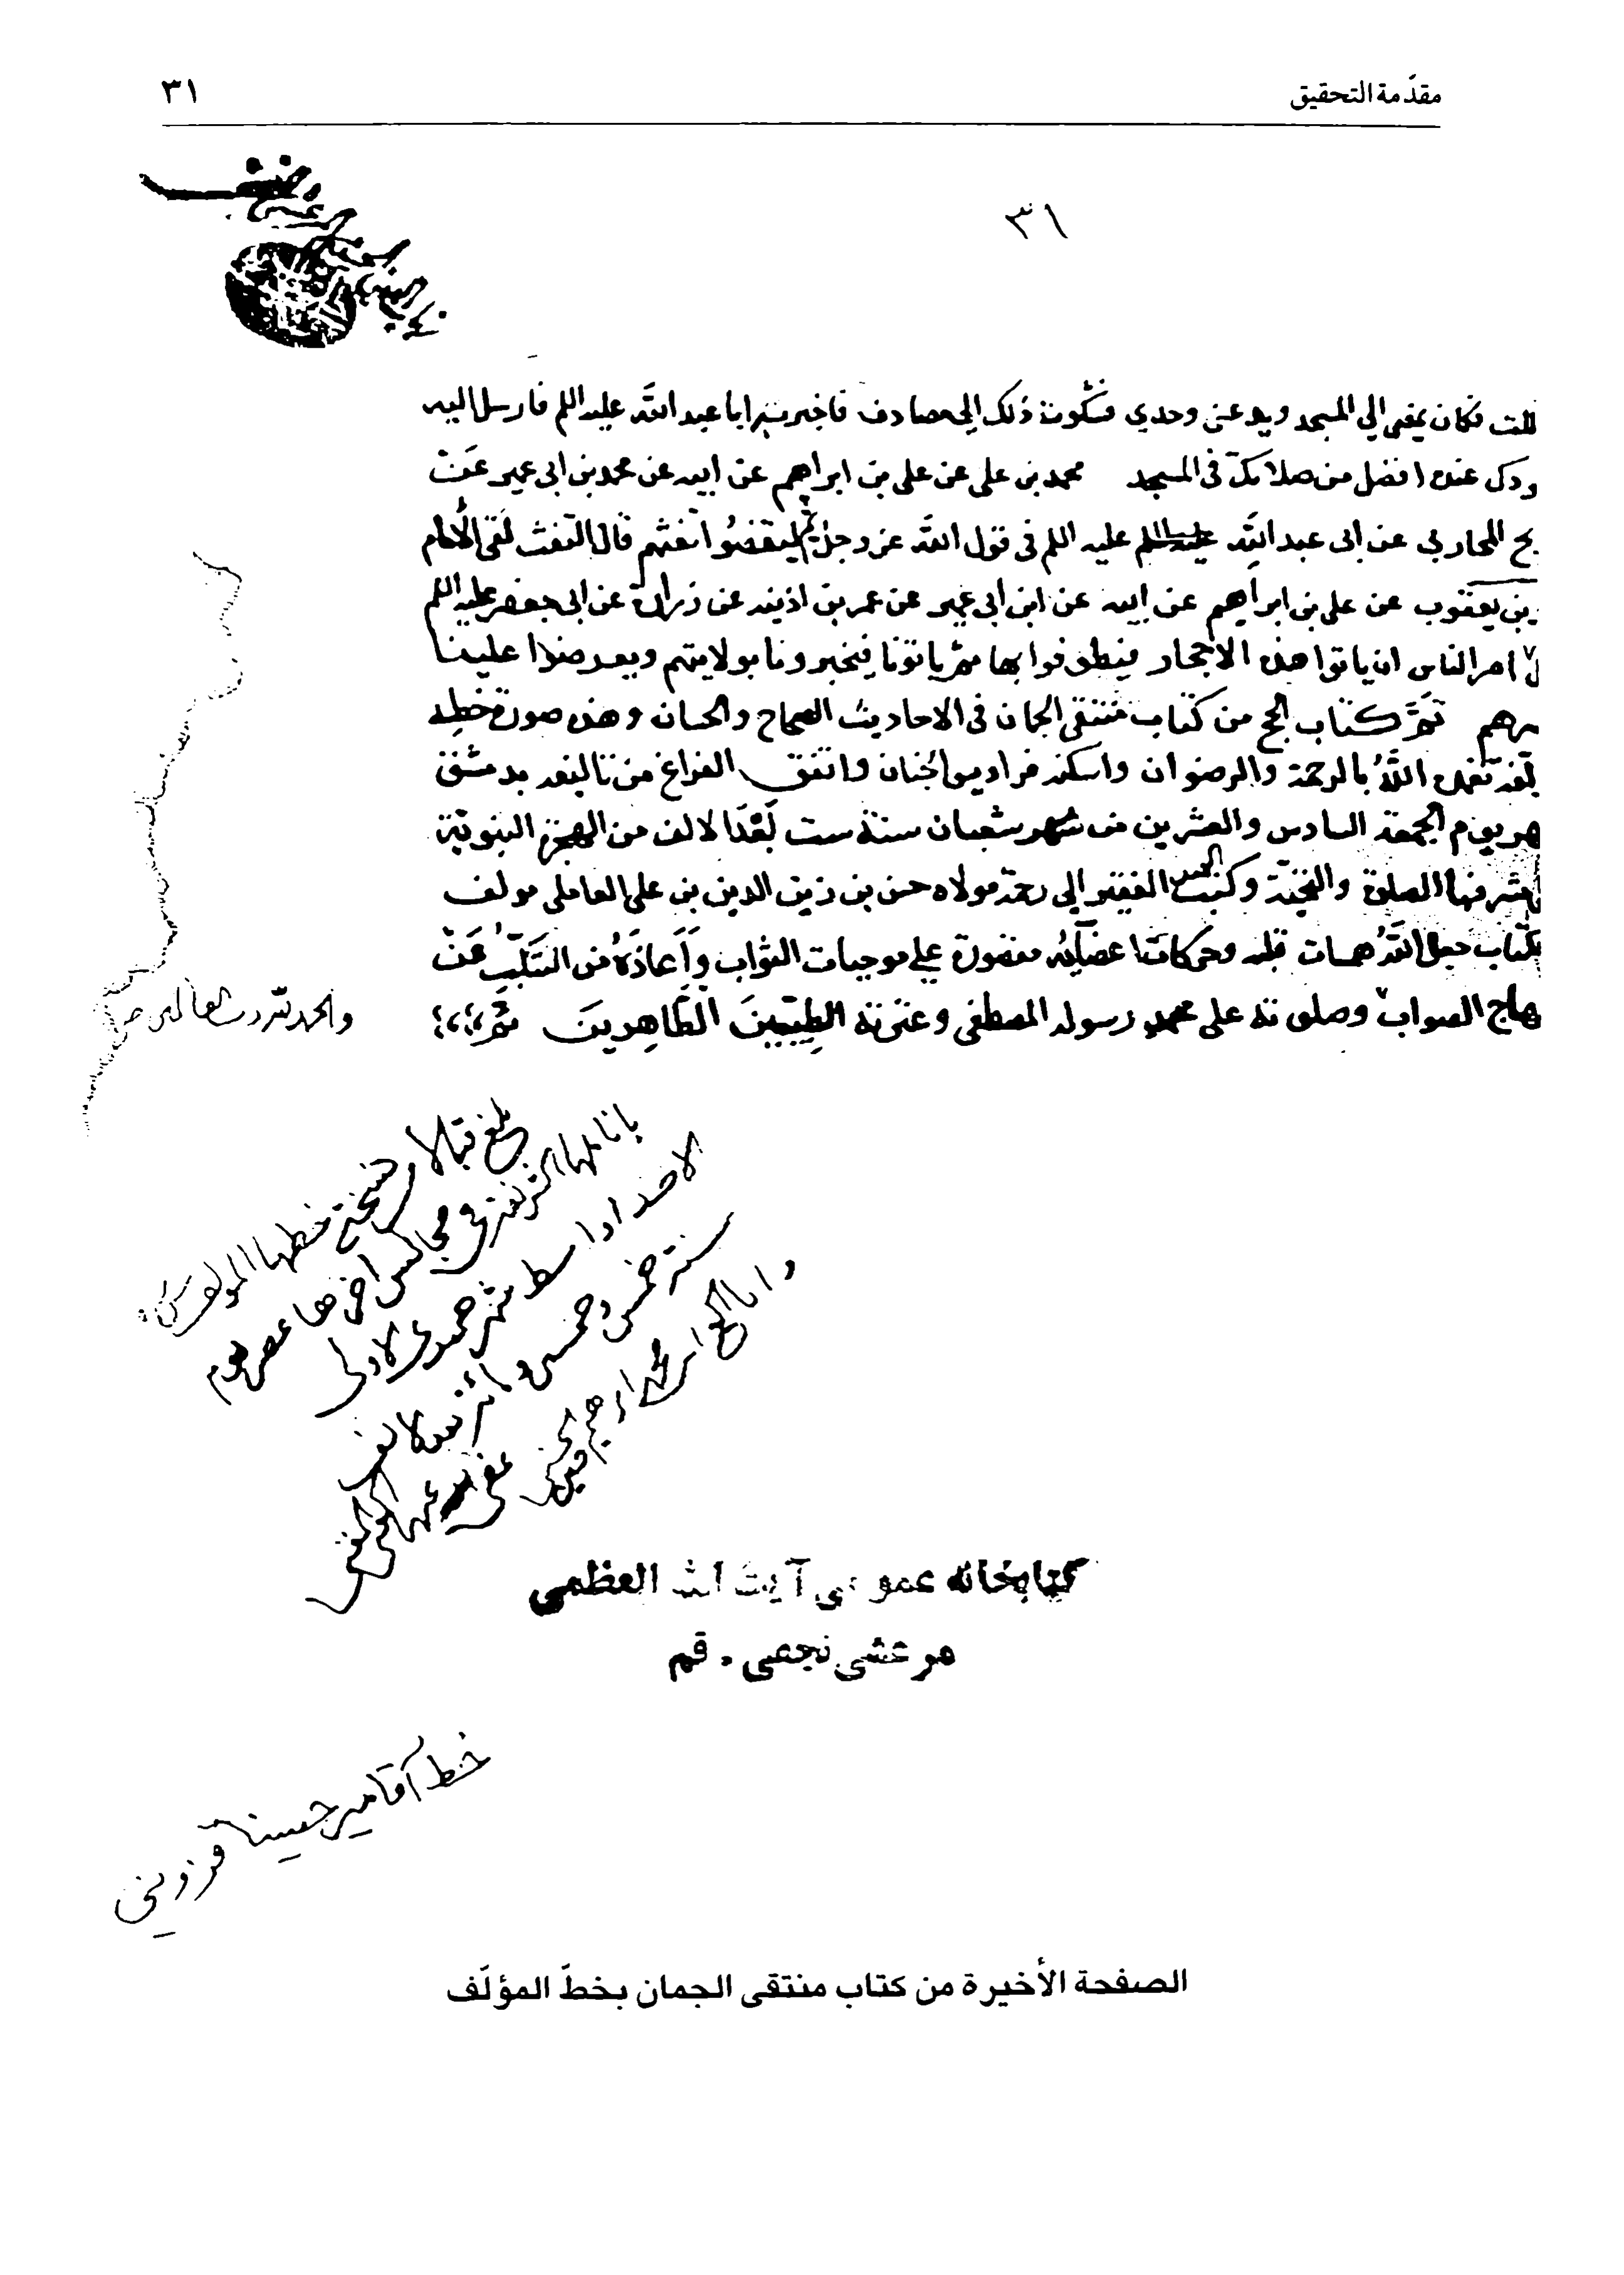 مقدّمة التحقيق
٣١
٣١
قلت فكان يمضى الى المسجد ويدعنى وحدي فشكوت ذلك الى مصادف فاخبر به ابا عبد الله عليه السلم فارسل اليه
عنده افضل من صلاتك فى المسجد محمد بن على عن على بن ابراهيم عن ابيه عن محمد بن ابى عمير عن
المحاربى عن ابى عبد الله عليه السلم فى قول الله عز وجل ثم ليقضوا تفثهم قال التفث
بن يعقوب عن على بن ابراهيم عن ابيه عن ابن ابى عمير عن عمر بن اذينه عن زرارة عن ابى جعفر عليه السلم
امر الناس ان ياتوا هذه الاحجار فيطوفوا بها ثم ياتونا فيخبرونا بولايتهم ويعرضوا علينا
نصرهم تم كتاب الحج من كتاب منتقى الجمان فى الاحاديث الصحاح والحسان وهذه صورة خطه
تغمده الله بالرحمة والرضوان واسكنه فراديس الجنان واتفق الفراغ من تاليفه بدمشق
يوم الجمعة السادس والعشرين من شهر شعبان سنة ست بعد الالف من الهجرة النبوية
مشرفها الصلوة والتحية وكتب العبد الفقير الى رحمة مولاه حسن بن زين الدين بن على العاملى مولف
الكتاب جعل الله همسات قلبه وحركات اعضائه مقصورة على موجبات الثواب واعاذه من التنكب عن
منهاج الصواب وصلوته على محمد رسوله المصطفى وعترته الطيبين الطاهرين تم
والحمد لله رب العالمين
بلغ قبالا بنسخة خطها المولف
بانامله الشريفة فى مجالس اخرها عصر يوم
الاحد اواسط شهر جميدى الاولى
سنة خمس وخمسين ومائة بعد الالف
وانا
كتابخانه عمومى آيت الله العظمى
مرعشى نجفى - قم
خط آقا مير حسينا قزوينى
الصفحة الأخيرة من كتاب منتقى الجمان بخطّ المؤلّف